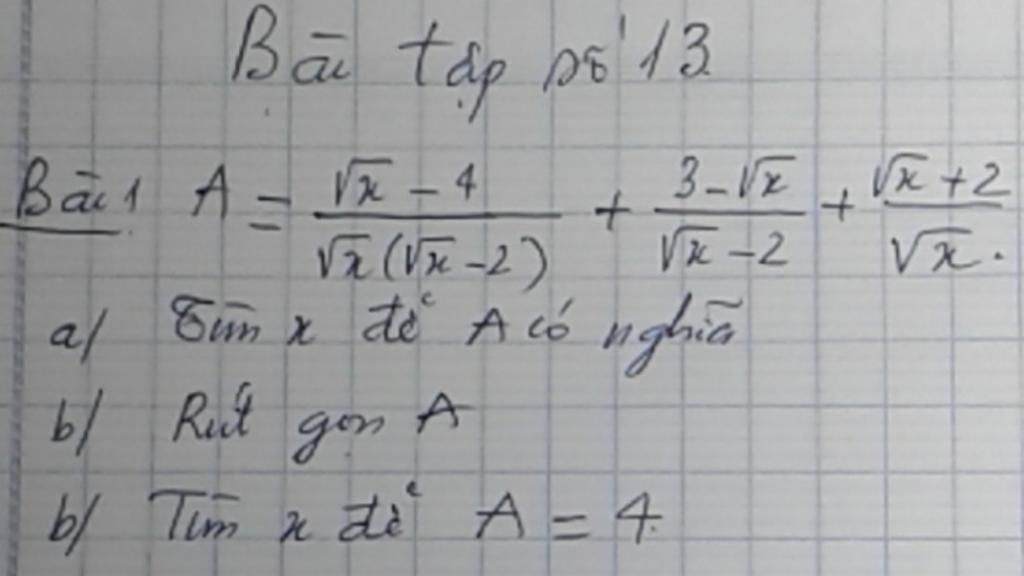 Bài tập số 13
Bài 1 A = \frac{\sqrt{x} - 4}{\sqrt{x}(\sqrt{x} - 2)} + \frac{3 - \sqrt{x}}{\sqrt{x} - 2} + \frac{\sqrt{x} + 2}{\sqrt{x}}.
a/ Tìm x để A có nghĩa
b/ Rút gọn A
b/ Tìm x để A = 4.